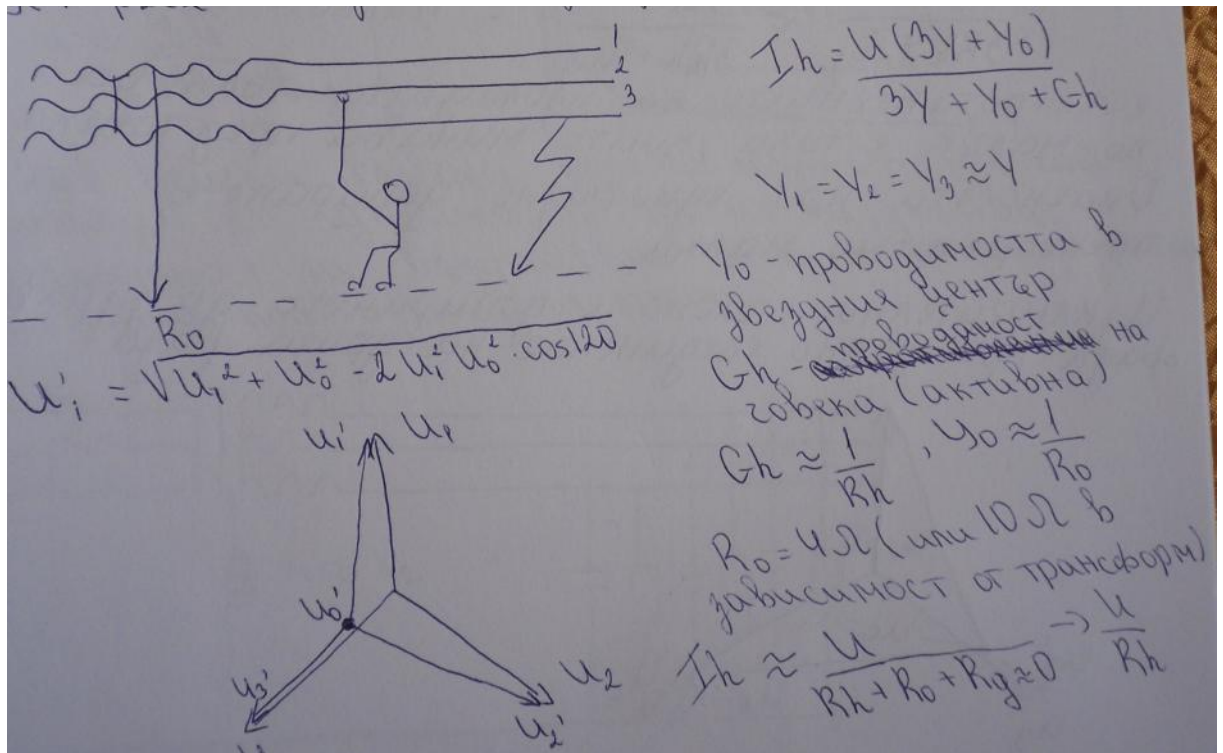 1
2
3
R₀
U₁' = √U₁² + U₀² - 2U₁²U₀² · cos120
U₁' U₁
U₀'
U₃'
U₂
U₂'
Ih = U(3Y + Y₀) / 3Y + Y₀ + Gh
Y₁ = Y₂ = Y₃ ≈ Y
Y₀ - проводимостта в
звездния център
Gh - проводямост на
човека (активна)
Gh ≈ 1/Rh , Y₀ ≈ 1/R₀
R₀ = 4Ω (или 10Ω в
зависимост от трансформ)
Ih ≈ U / Rh + R₀ + Rg ≈ 0 → U / Rh